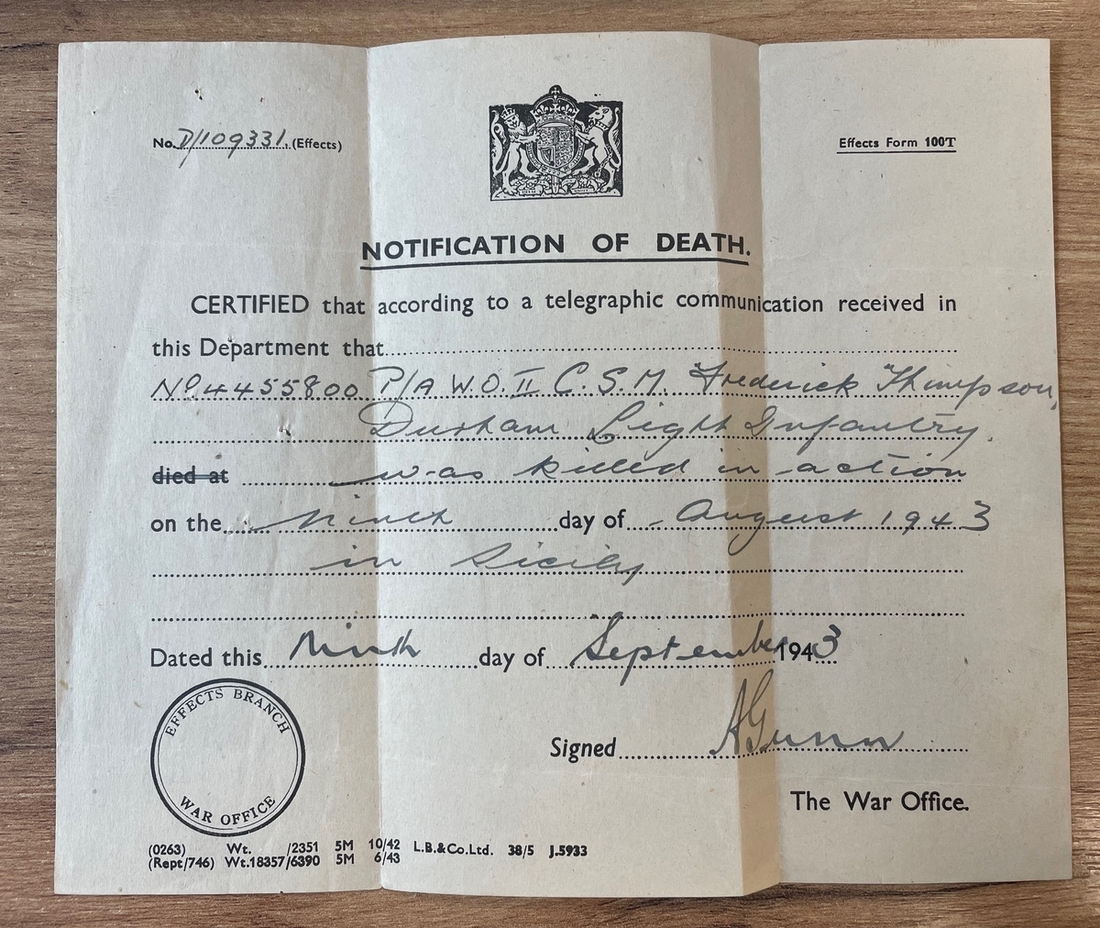 No. D/109331. (Effects)
Effects Form 100T
NOTIFICATION OF DEATH.
CERTIFIED that according to a telegraphic communication received in
this Department that
No. 4455800 P/A W.O. II C.S.M. Frederick Thimpson,
Durham Light Infantry.
died at was killed in action
on the Ninth day of August 1943
in Sicily
Dated this Ninth day of September 1943
EFFECTS BRANCH
WAR OFFICE
Signed AGunn
The War Office.
(0263) Wt. /2351 5M 10/42 L.B.&Co.Ltd. 38/5 J.5933
(Rept/746) Wt.18357/6390 5M 6/43